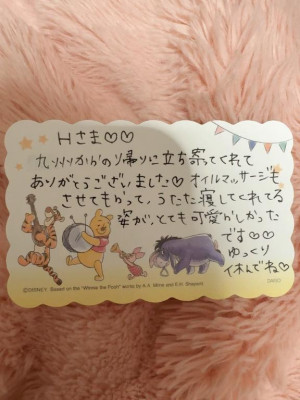 Hさま♡♡
九州からの帰りに立ち寄ってくれて
ありがとうございました♡ オイルマッサージも
させてもらって、うたた寝してくれてる
姿が、とても可愛らしかった
です♡♡
ゆっくり
休んでね♡
©DISNEY Based on the "Winnie the Pooh" works by A.A. Milne and E.H. Shepard.
DAISO